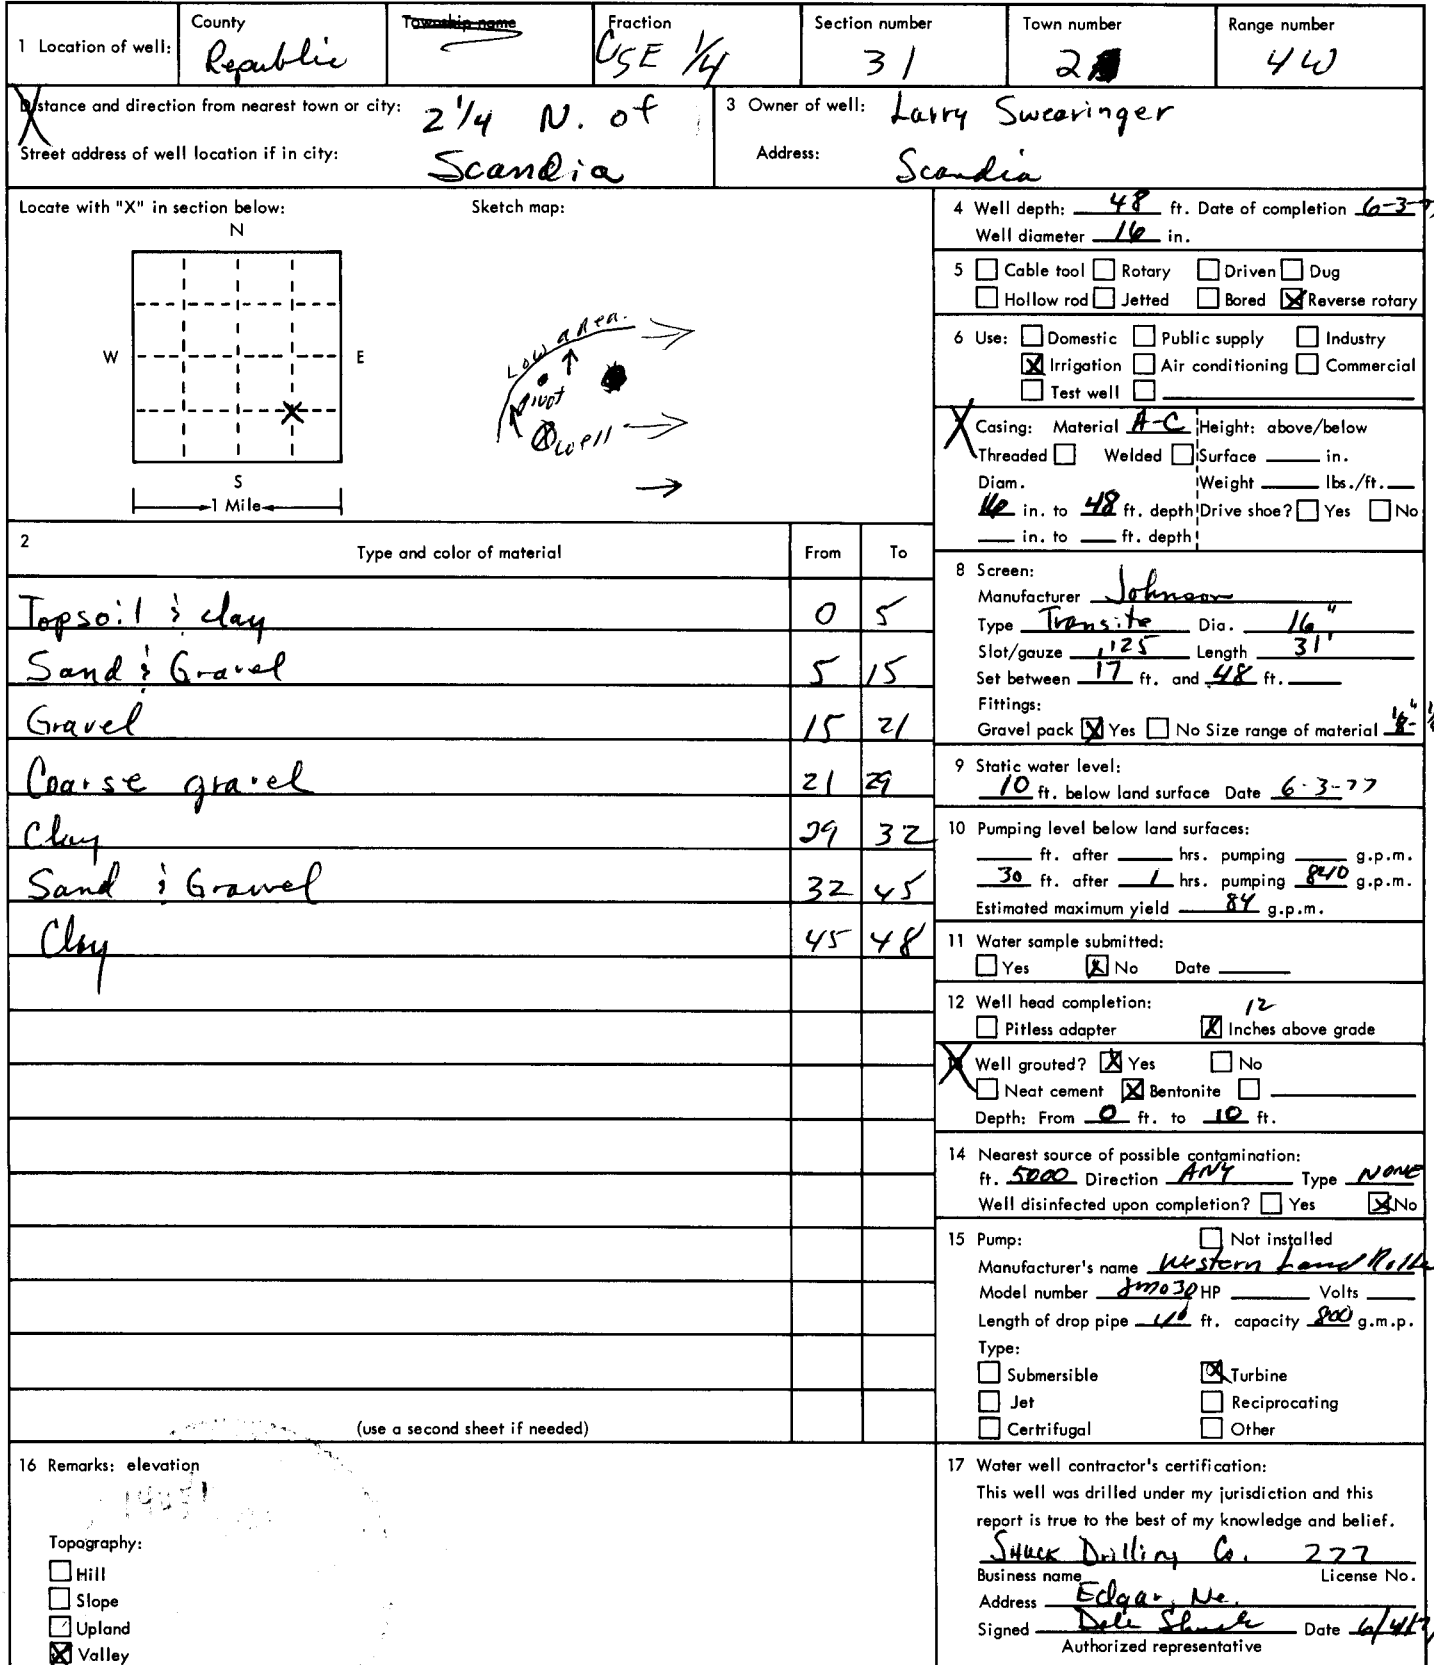 1 Location of well:
County
Republic
Township name
Fraction
CSE 1/4
Section number
31
Town number
2
Range number
4W
Distance and direction from nearest town or city: 2 1/4 N. of
Street address of well location if in city: Scandia
3 Owner of well: Larry Swearinger
Address: Scandia
Locate with "X" in section below:
Sketch map:
N
W
E
S
1 Mile
Low area.
Pivot
well
2
Type and color of material
From
To
Topsoil & clay 0 5
Sand & Gravel 5 15
Gravel 15 21
Coarse gravel 21 29
Clay 29 32
Sand & Gravel 32 45
Clay 45 48
(use a second sheet if needed)
16 Remarks: elevation
Topography:
Hill
Slope
Upland
X Valley
4 Well depth: 48 ft. Date of completion 6-3-
Well diameter 16 in.
5 Cable tool Rotary Driven Dug
Hollow rod Jetted Bored X Reverse rotary
6 Use: Domestic Public supply Industry
X Irrigation Air conditioning Commercial
Test well
Casing: Material A-C Height: above/below
Threaded Welded Surface in.
Diam. Weight lbs./ft.
16 in. to 48 ft. depth Drive shoe? Yes No
in. to ft. depth
8 Screen:
Manufacturer Johnson
Type Transite Dia. 16"
Slot/gauze .125 Length 31'
Set between 17 ft. and 48 ft.
Fittings:
Gravel pack X Yes No Size range of material
9 Static water level:
10 ft. below land surface Date 6-3-77
10 Pumping level below land surfaces:
ft. after hrs. pumping g.p.m.
30 ft. after 1 hrs. pumping 840 g.p.m.
Estimated maximum yield 84 g.p.m.
11 Water sample submitted:
Yes X No Date
12 Well head completion: 12
Pitless adapter X Inches above grade
Well grouted? X Yes No
Neat cement X Bentonite
Depth: From 0 ft. to 10 ft.
14 Nearest source of possible contamination:
ft. 5000 Direction ANY Type NONE
Well disinfected upon completion? Yes X No
15 Pump: Not installed
Manufacturer's name Western Land
Model number HP Volts
Length of drop pipe 40 ft. capacity 800 g.m.p.
Type:
Submersible X Turbine
Jet Reciprocating
Certrifugal Other
17 Water well contractor's certification:
This well was drilled under my jurisdiction and this
report is true to the best of my knowledge and belief.
Shuck Drilling Co. 277
Business name License No.
Address Edgar, Ne.
Signed Dale Shuck Date 6/4/
Authorized representative